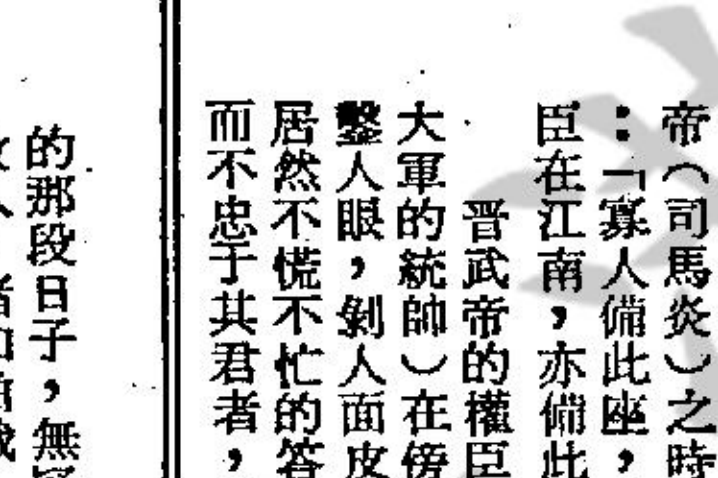 帝（司馬炎）之時
：「寡人備此座，
臣在江南，亦備此
晋武帝的權臣
大軍的統帥）在傍
鑿人眼，剝人面皮
居然不慌不忙的答
而不忠于其君者，
的那段日子，無